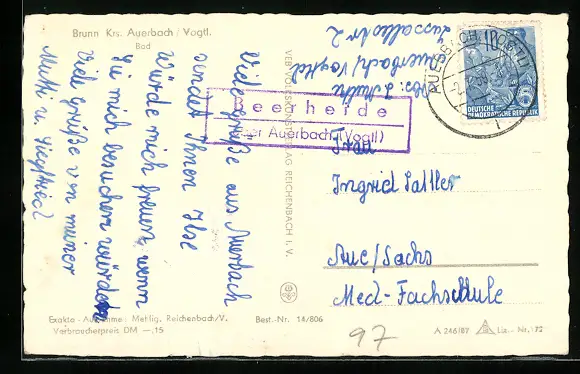 Brunn Krs. Auerbach / Vogtl.
Bad
Viele Grüße aus Auerbach
sendet Ihnen Ilse
Würde mich freuen, wenn
Sie mich besuchen würden
Viel Grüße von meiner
Mutti u. Siegfried
Exakta-Aufnahme: Mehlig, Reichenbach/V.
Verbraucherpreis DM —,15
Best.-Nr. 14/806
VEB VOLKSKUNSTVERLAG REICHENBACH I. V.
Auerbach/Vogtl
Beerheide
über Auerbach (Vogtl)
AUERBACH (VOGTL)
DEUTSCHE
DEMOKRATISCHE REPUBLIK
Frau
Ingrid Sattler
Aue/Sachs
Med-Fachschule
97
A 246/87
Liz.-Nr. 72